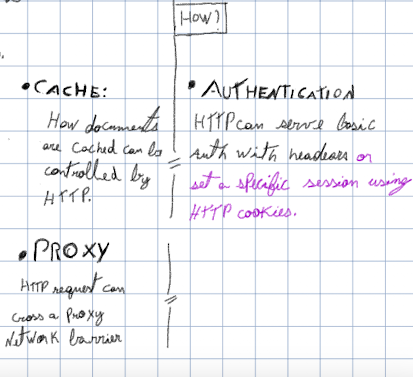 How?
• CACHE:
How documents
are cached can be
controlled by
HTTP.
• AUTHENTICATION
HTTP can serve basic
auth with headears or
set a specific session using
HTTP cookies.
• PROXY
HTTP request can
cross a proxy
network barrier